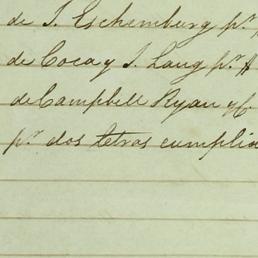 de J. Eschemburg pr.
de Coca y J. Laug pr. A
de Campbell Ryan y
pr. dos letras cumplia